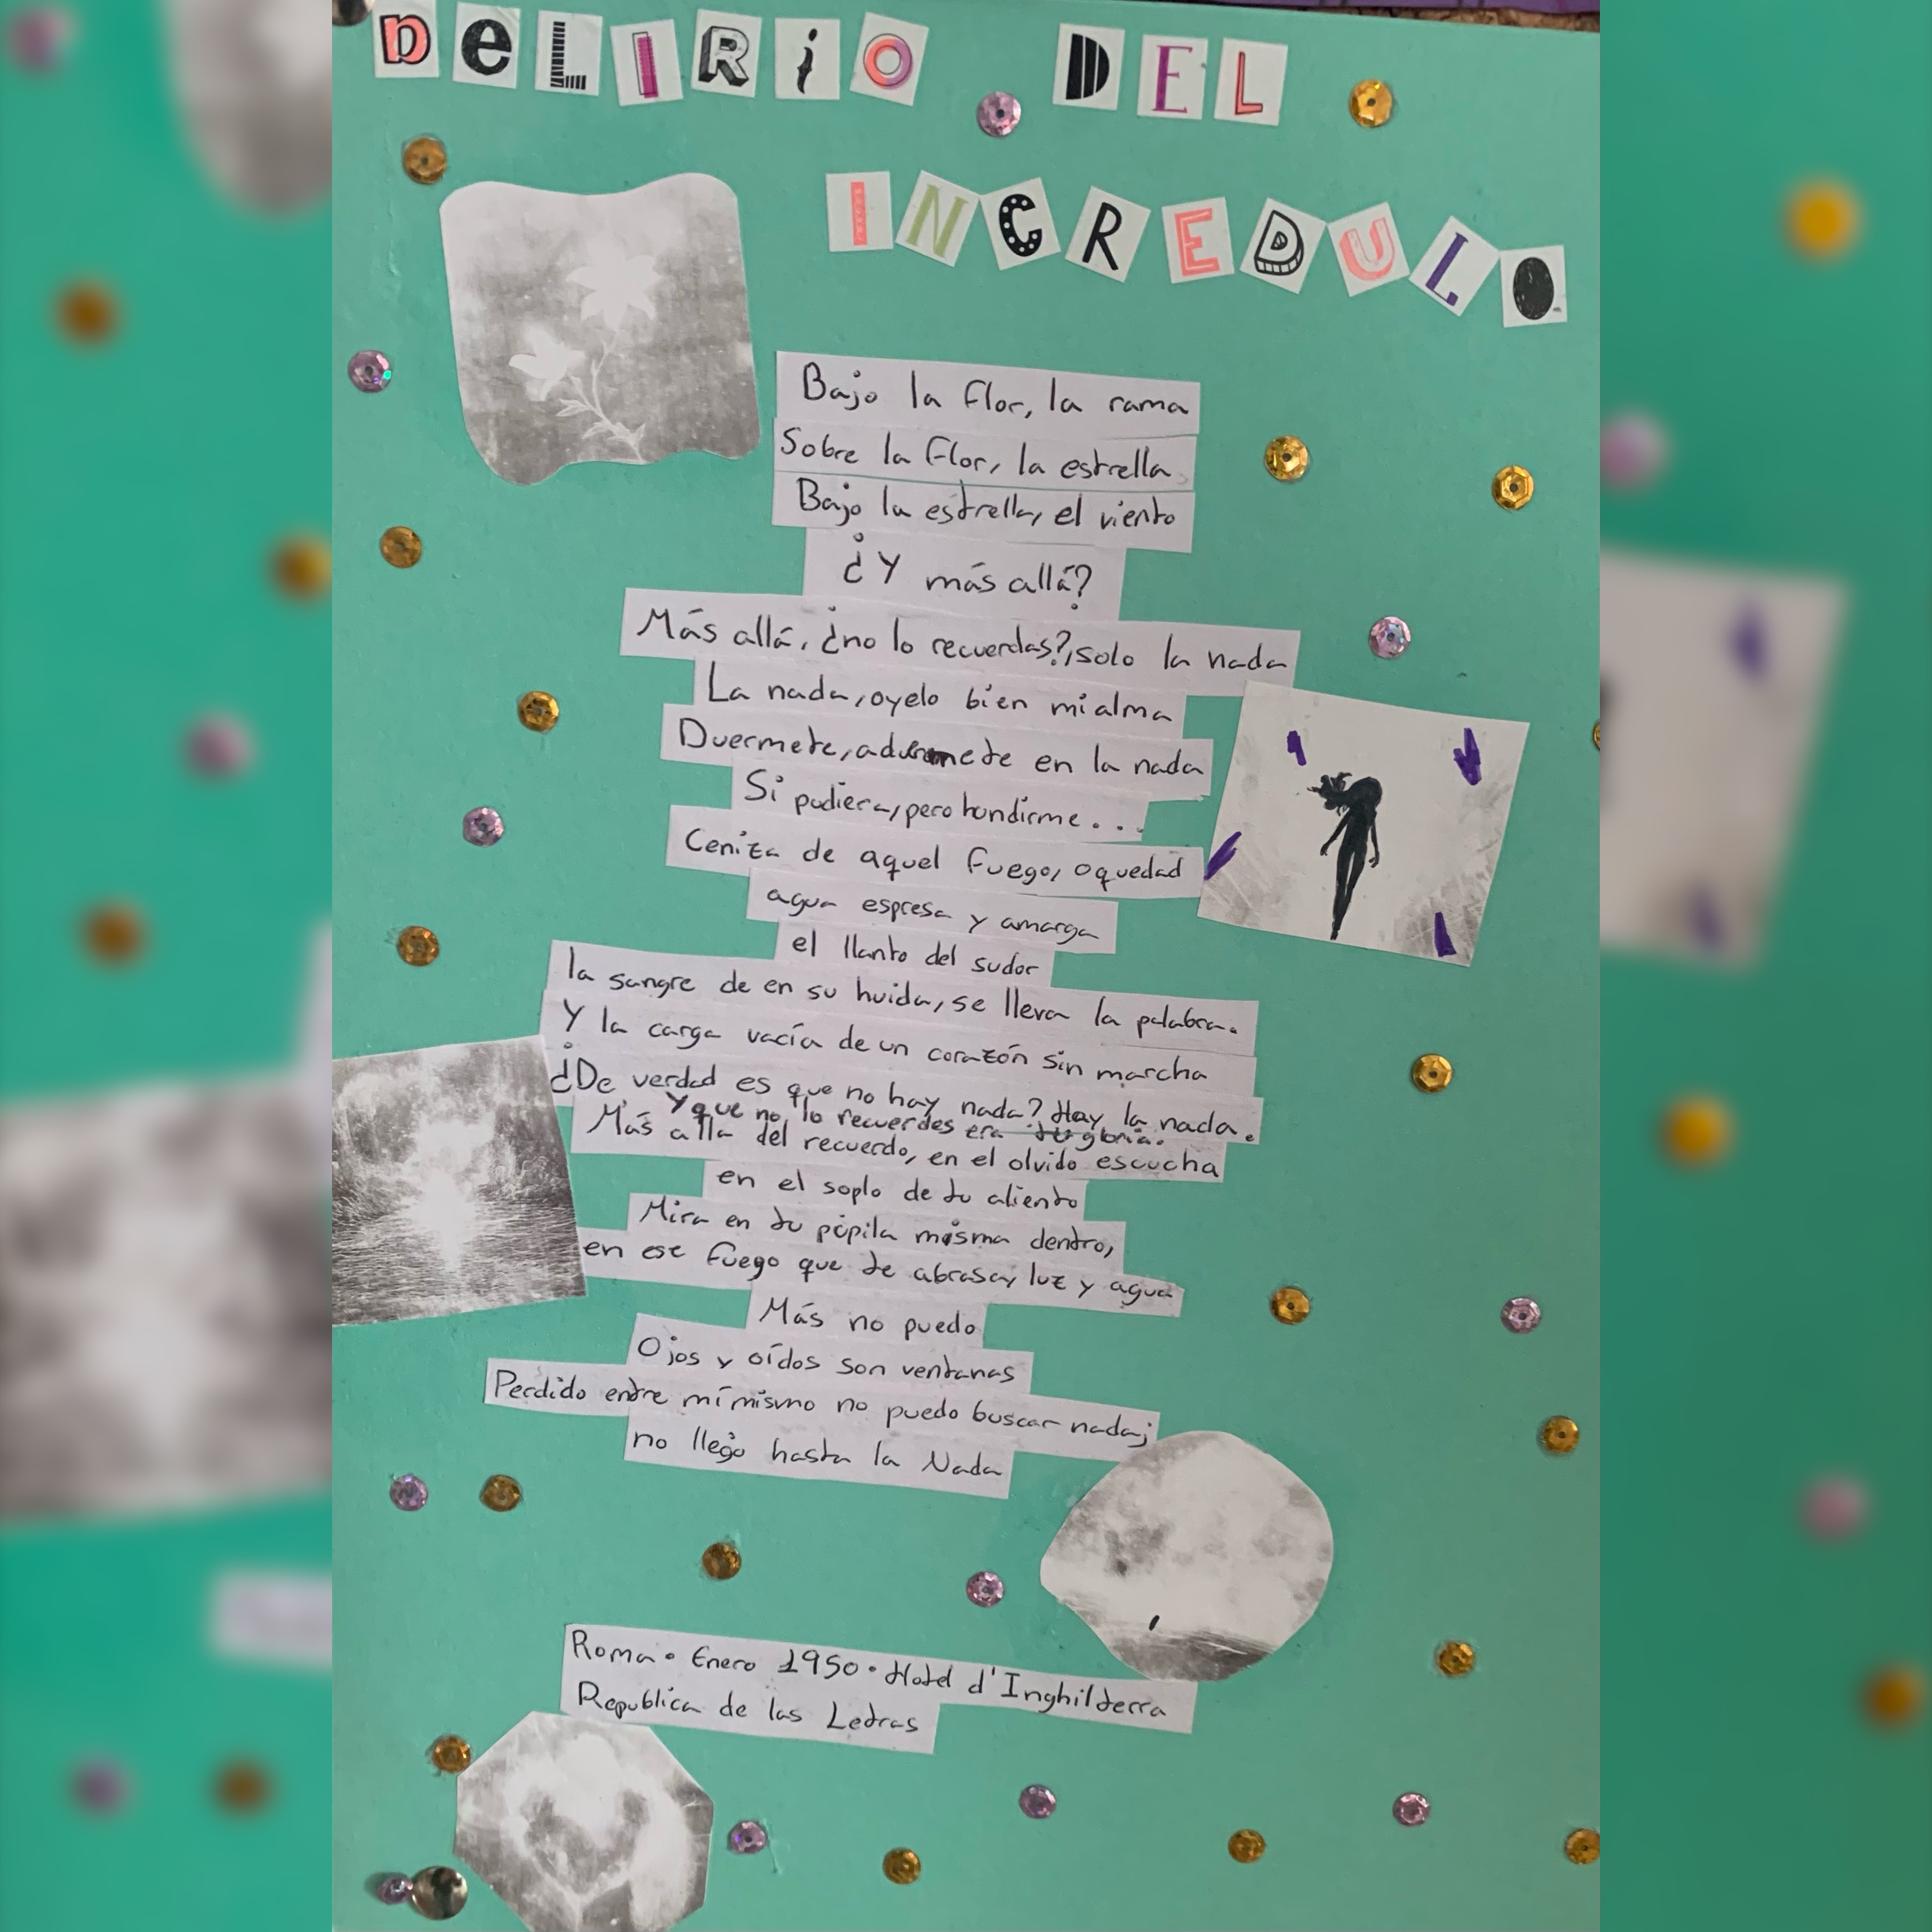 DELIRIO DEL
INCREDULO
Bajo la flor, la rama
Sobre la flor, la estrella
Bajo la estrella, el viento
¿Y más allá?
Más allá, ¿no lo recuerdas?, solo la nada
La nada, oyelo bien mi alma
Duermete, aduermete en la nada
Si pudiera, pero hundirme...
Ceniza de aquel fuego, oquedad
agua espresa y amarga
el llanto del sudor
la sangre de en su huida, se lleva la palabra.
Y la carga vacía de un corazón sin marcha
¿De verdad es que no hay nada? Hay la nada.
Y que no lo recuerdes era tu gloria.
Más alla del recuerdo, en el olvido escucha
en el soplo de tu aliento
Mira en tu pupila misma dentro,
en ese fuego que te abrasa, luz y agua
Más no puedo
Ojos y oídos son ventanas
Perdido entre mí mismo no puedo buscar nada;
no llego hasta la Nada
Roma. Enero 1950. Hotel d'Inghilterra
Republica de las Letras